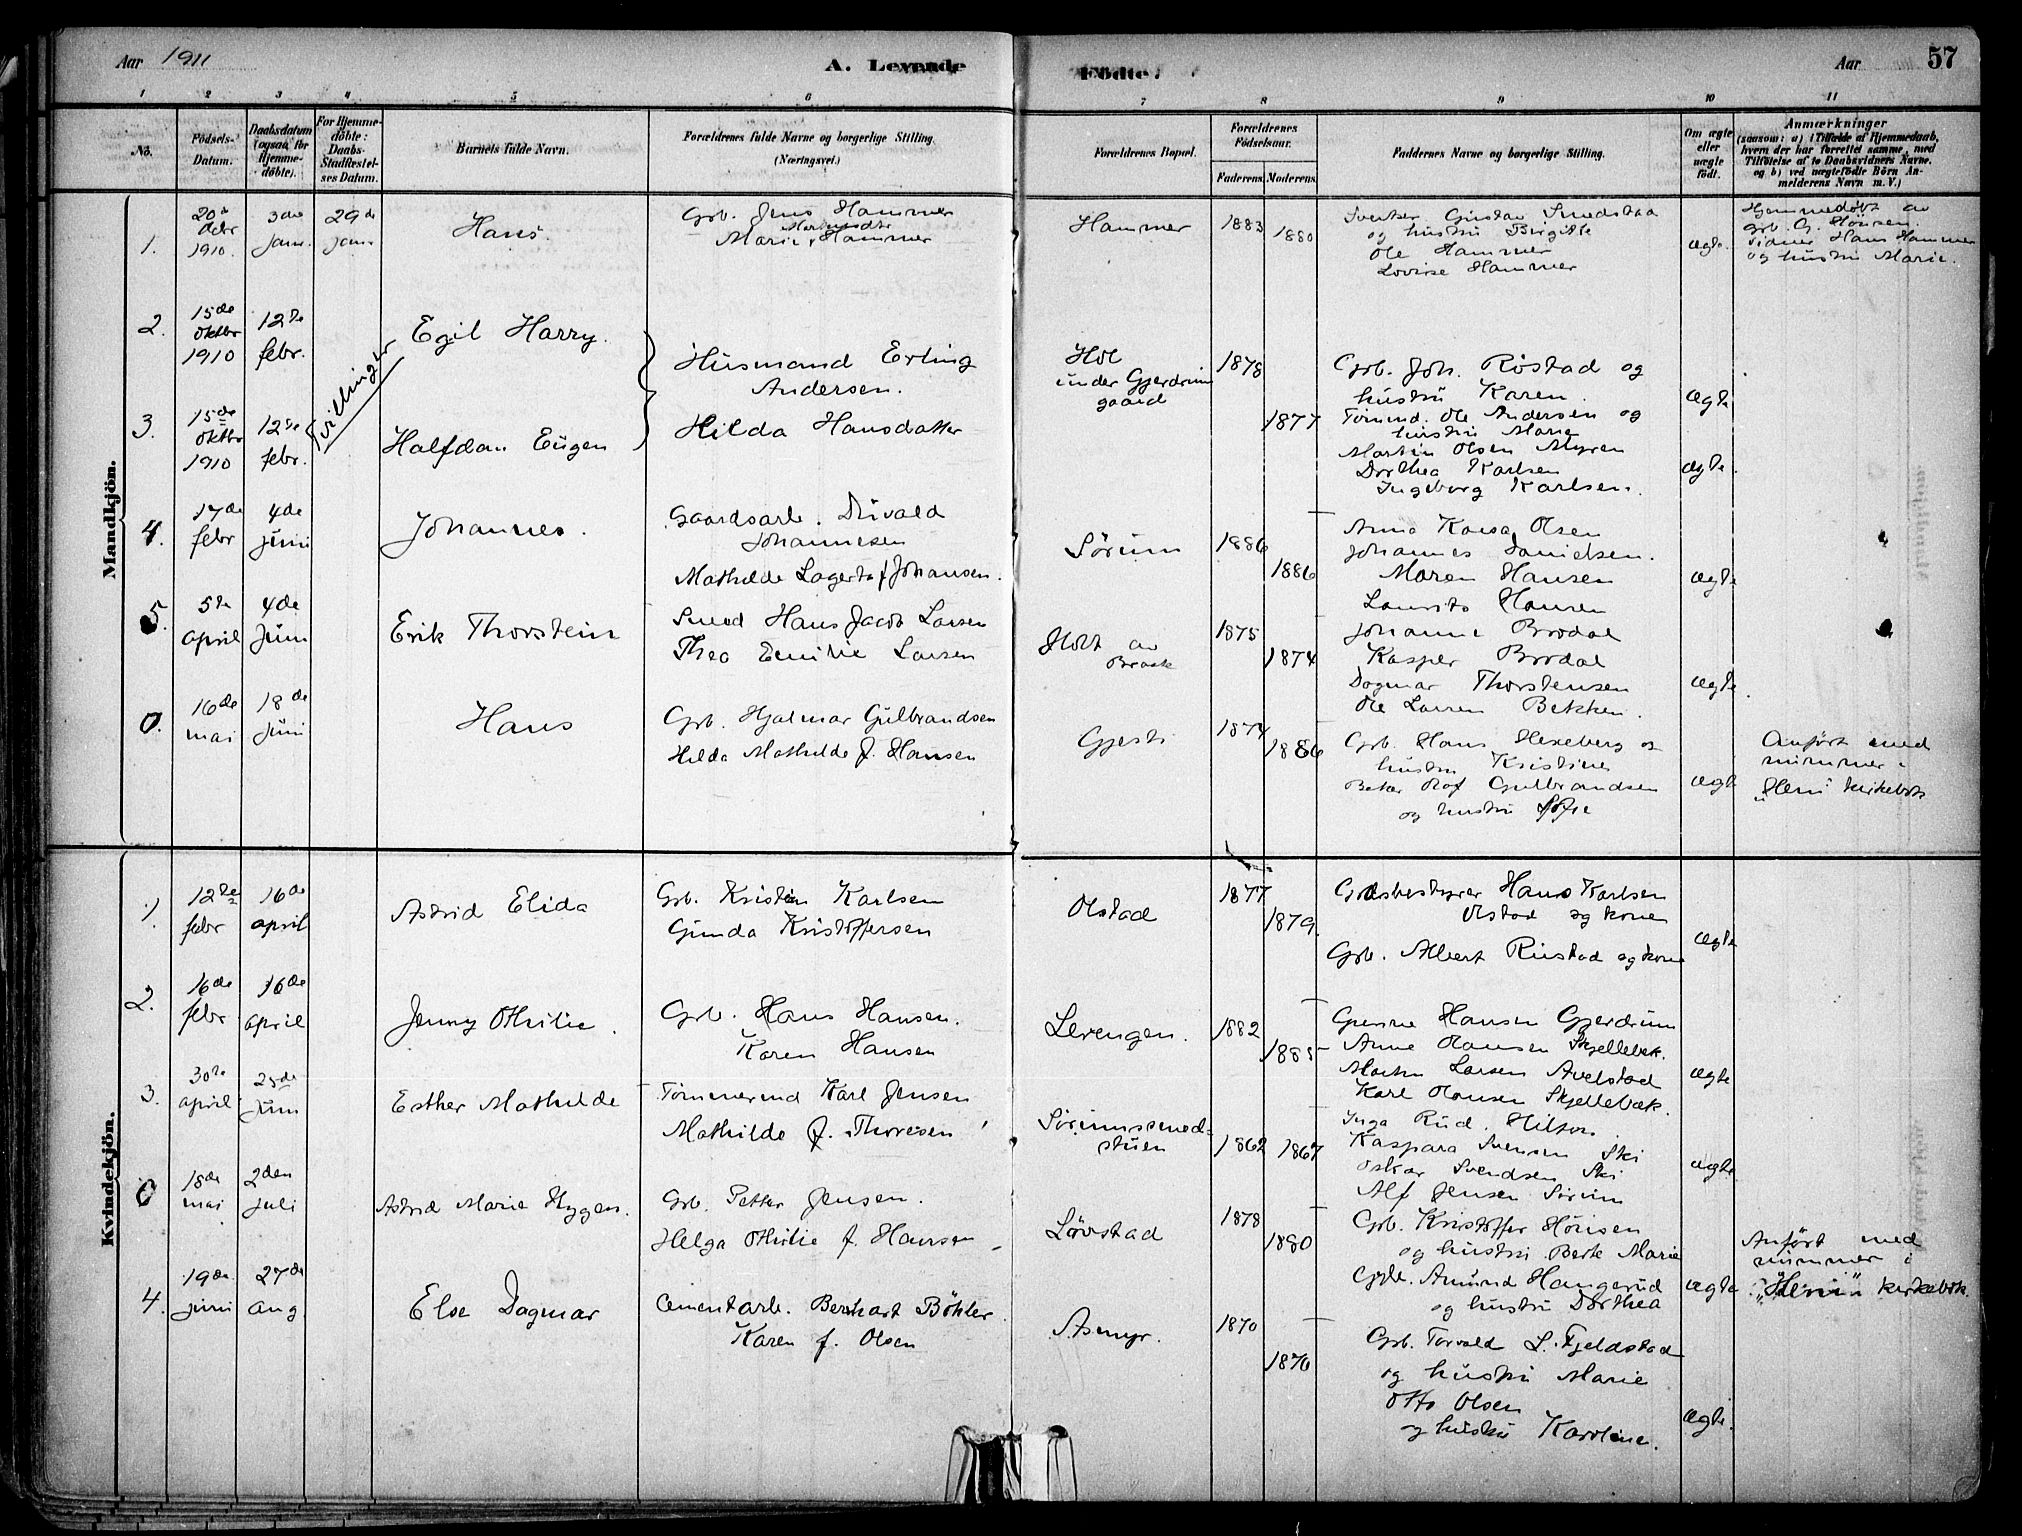 Aar 1911
A. Levende
Födte.
Aar
57
1
2
3
4
5
6
7
8
9
10
11
No.
Födsels-
Datum.
Daabsdatum
(ogsaa for
Hjemme-
döbte).
For Hjemme-
döbte:
Daabs-
Stadfæstel-
ses Datum.
Barnets fulde Navn.
Forældrenes fulde Navne og borgerlige Stilling.
(Næringsvei.)
Forældrenes Bopæl.
Forældrenes
Födselsaar.
Faderens.
Moderens.
Faddernes Navne og borgerlige Stilling.
Om ægte
eller
uægte
födt.
Anmærkninger
(saasom: a) i Tilfælde af Hjemmedaab,
hvem der har forrettet samme, med
Tilföielse af to Daabsvidners Navne.
og b) ved uægtefödte Börn An-
melderens Navn m. V.)
Mandkjön.
1.
20de
debr
1910.
3de
jan.
29de
jan
Hans.
Grb. Jens Hammer
Marie Hammer
Hammer
1883
1880
Gustav Smedstad
og hustru Birgitte
Ole Hammer
Lovise Hammer
ægte.
Hjemmedøbt av
grb. G. Hönsen.
Vidner Hans Hammer
og hustru Marie.
2.
15de
oktbr
1910
12te
febr.
Tvillinger
Egil Harry.
Husmand Erling
Andersen.
Hol
under Gjerdrum
gaard
1878
Grb. Joh. Røstad og
hustru Karen.
ægte
3.
15de
oktbr
1910
12te
febr.
Halfdan Eugen
Hilda Hansdatter
1877
Tømmd. Ole Andersen og
hustru Marie
Martin Olsen Myren
Dorthea Karlsen
Ingeborg Karlsen.
ægte.
4.
17de
febr
4de
juni
Johannes.
Gaardsarb.
Johannesen
Mathilde Lagerta f. Johansen.
Sørum
1886
1886
Anna Olsen
Johannes Danielsen.
Maren Hansen
Laurits Hansen
ægte
5.
5te
april
4de
Juni
Erik Thorstein
Smed Hans Jacob Larsen
Thea Emilie Larsen
Holt av
Braak
1875
1874
Johanne Brodal
Kasper Brodal
Dagmar Thorstensen
Ole Larsen Bekken.
ægte.
0.
16de
mai
18de
Juni
Hans
Grb. Hjalmar Gulbrandsen
Hilda Mathilde f. Hansen
Gjesti
1874
1886
Grb. Hans Hexeberg og
hustru Kristine
Olaf Gulbrandsen
og hustru Sofie
ægte
Anført med
nummer i
"Heni" kirkebok
Kvindekjön.
1.
12te
febr
16de
april
Astrid Elida
Grb. Kristen Karlsen
Gunda Kristoffersen
Olstad
1877
1879.
Gaardsbestyrer Hans Karlsen
Olstad og kone
Grb. Albert Rustad og kone
ægte
2.
16de
febr
16de
april
Jenny Othilie.
Grb. Hans Hansen.
Karen Hansen
Levengen.
1882
1885
Hansen Gjerdrum
Anne Hansen Skjellebek.
Martin Larsen Avelstad
Karl Hansen Skjellebæk.
ægte
3.
30te
april
25de
Juni
Esther Mathilde
Tømmermd Karl Jensen
Mathilde f. Thoresen
Sørumssmed-
stuen
1862
1867
Inga Rud. Hilton.
Kaspara Svensen Ski
Oskar Svendsen Ski
Alf Jensen Sørum
ægte
0
18de
mai
2den
juli
Astrid Marie Hygen.
Grb. Petter Jensen.
Helga Othilie f. Hansen
Løvstad
1878
1880
Grb. Kristoffer Hönsen
og hustru Berte Marie
Grb. Amund Haugerud
og hustru Dorthea
ægte
Anført med
nummer i
"Heni" kirkebok.
4.
19de
juni
27de
aug.
Else Dagmar
Cementarb. Bernhart Böhler
Karen f. Olsen
Asmyr.
1870
1876
Grb. Torvald L. Fjeldstad
og hustru Marie
Otto Olsen
og hustru Karoline.
ægte.